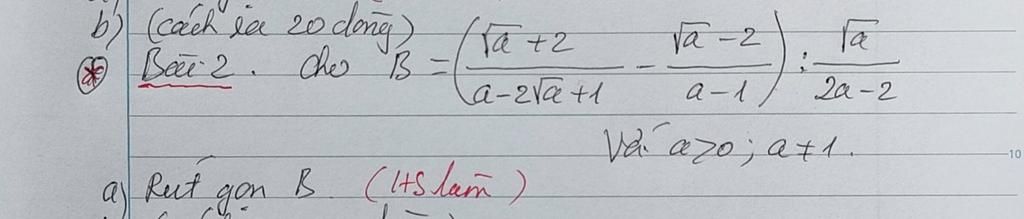 b) (cách ra 20 dòng)
Bài 2. Cho B = ((√a + 2)/(a - 2√a + 1) - (√a - 2)/(a - 1)) : √a/(2a - 2)
Với a > 0; a ≠ 1.
10
a) Rút gọn B (HS làm)